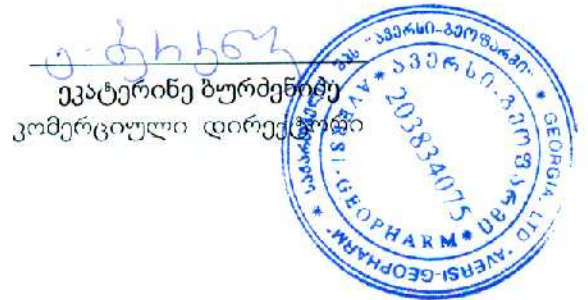 ეკატერინე ბურძენიძე
კომერციული დირექტორი
შპს "ავერსი-გეოფარმი" * GEORGIA, LTD "AVERSI-GEOPHARM" * საქართველო
* ავერსი-გეოფარმი * AVERSI-GEOPHARM
203834075